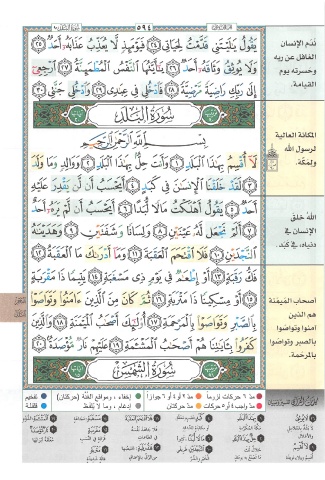 ٥٩٤
يَقُولُ يَٰلَيْتَنِي قَدَّمْتُ لِحَيَاتِي ٢٤ فَيَوْمَئِذٍ لَّا يُعَذِّبُ عَذَابَهُ أَحَدٌ ٢٥
وَلَا يُوثِقُ وَثَاقَهُ أَحَدٌ ٢٦ يَٰٓأَيَّتُهَا النَّفْسُ الْمُطْمَئِنَّةُ ٢٧ ارْجِعِي
إِلَىٰ رَبِّكِ رَاضِيَةً مَّرْضِيَّةً ٢٨ فَادْخُلِي فِي عِبَٰدِي ٢٩ وَادْخُلِي جَنَّتِي ٣٠
سُورَةُ الْبَلَدِ
بِسْمِ اللَّهِ الرَّحْمَٰنِ الرَّحِيمِ
لَآ أُقْسِمُ بِهَٰذَا الْبَلَدِ ١ وَأَنتَ حِلٌّ بِهَٰذَا الْبَلَدِ ٢ وَوَالِدٍ وَمَا وَلَدَ
٣ لَقَدْ خَلَقْنَا الْإِنسَٰنَ فِي كَبَدٍ ٤ أَيَحْسَبُ أَن لَّن يَقْدِرَ عَلَيْهِ
أَحَدٌ ٥ يَقُولُ أَهْلَكْتُ مَالًا لُّبَدًا ٦ أَيَحْسَبُ أَن لَّمْ يَرَهُۥٓ أَحَدٌ
٧ أَلَمْ نَجْعَل لَّهُۥ عَيْنَيْنِ ٨ وَلِسَانًا وَشَفَتَيْنِ ٩ وَهَدَيْنَٰهُ
النَّجْدَيْنِ ١٠ فَلَا اقْتَحَمَ الْعَقَبَةَ ١١ وَمَآ أَدْرَىٰكَ مَا الْعَقَبَةُ ١٢
فَكُّ رَقَبَةٍ ١٣ أَوْ إِطْعَٰمٌ فِي يَوْمٍ ذِي مَسْغَبَةٍ ١٤ يَتِيمًا ذَا مَقْرَبَةٍ
١٥ أَوْ مِسْكِينًا ذَا مَتْرَبَةٍ ١٦ ثُمَّ كَانَ مِنَ الَّذِينَ ءَامَنُوا وَتَوَاصَوْا
بِالصَّبْرِ وَتَوَاصَوْا بِالْمَرْحَمَةِ ١٧ أُولَٰٓئِكَ أَصْحَٰبُ الْمَيْمَنَةِ ١٨ وَالَّذِينَ
كَفَرُوا بِـَٔايَٰتِنَا هُمْ أَصْحَٰبُ الْمَشْـَٔمَةِ ١٩ عَلَيْهِمْ نَارٌ مُّؤْصَدَةٌ ٢٠
سُورَةُ الشَّمْسِ
ندم الإنسان
الغافل عن ربه
وحسرته يوم
القيامة.
المكانة العالية
لرسول الله
ولمكة.
الله خلق
الإنسان في
دنياه، في كبد.
أصحاب الميمنة
هم الذين
آمنوا وتواصوا
بالصبر وتواصوا
بالمرحمة.
مد ٦ حركات لزوما
مد ٢ أو ٤ أو ٦ جوازا
إخفاء، ومواقع الغنة (حركتان)
تفخيم
مد واجب ٤ أو ٥ حركات
مد حركتان
إدغام، وما لا يلفظ
قلقلة